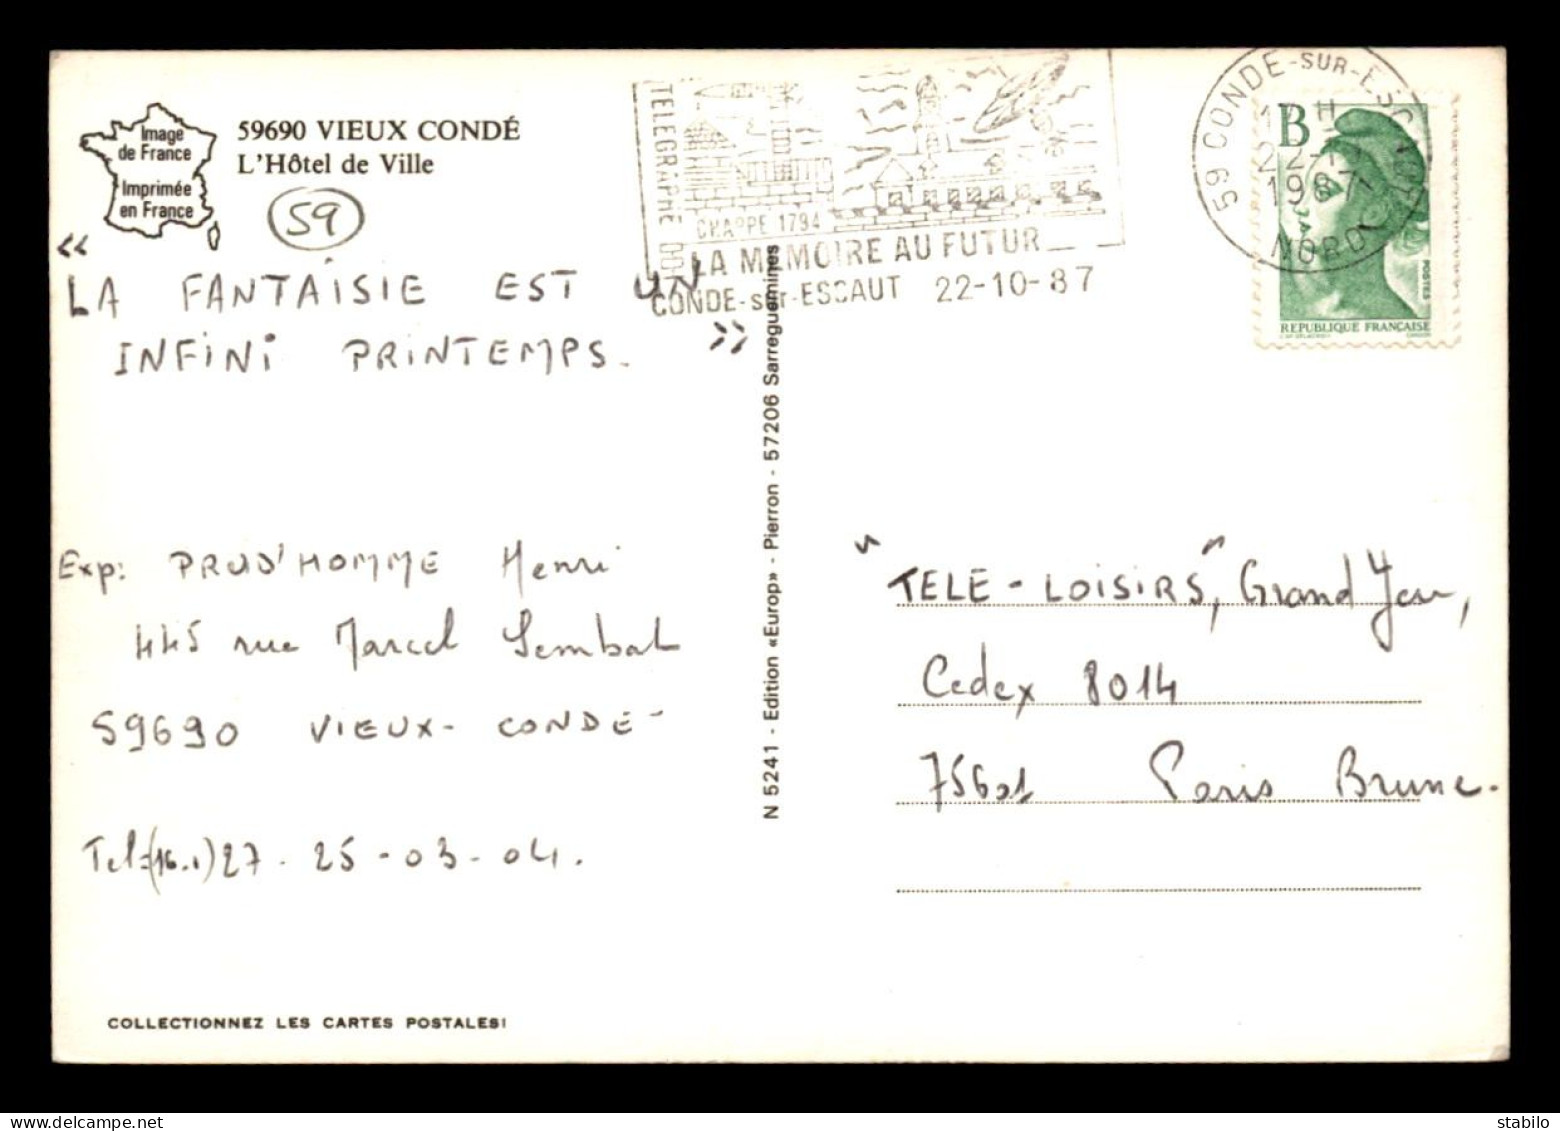 Image
de France
Imprimée
en France
59690 VIEUX CONDÉ
L'Hôtel de Ville
59
« LA FANTAISIE EST UN
INFINI PRINTEMPS. »
Exp: PRUD'HOMME Henri
445 rue Marcel Sembat
59690 VIEUX-CONDE-
Tel:(16.1) 27-25-03-04.
COLLECTIONNEZ LES CARTES POSTALES!
N 5241 - Edition «Europ» - Pierron - 57206 Sarreguemines
TELEGRAPHE
CHAPPE 1794
LA MEMOIRE AU FUTUR
CONDE-sur-ESCAUT 22-10-87
59 CONDE-SUR-ESCAUT
22-10
1987
NORD
B
POSTES
REPUBLIQUE FRANÇAISE
"TELE-LOISIRS", Grand Jeu,
Cedex 8014
75601 Paris Brune.
stabilo
www.delcampe.net